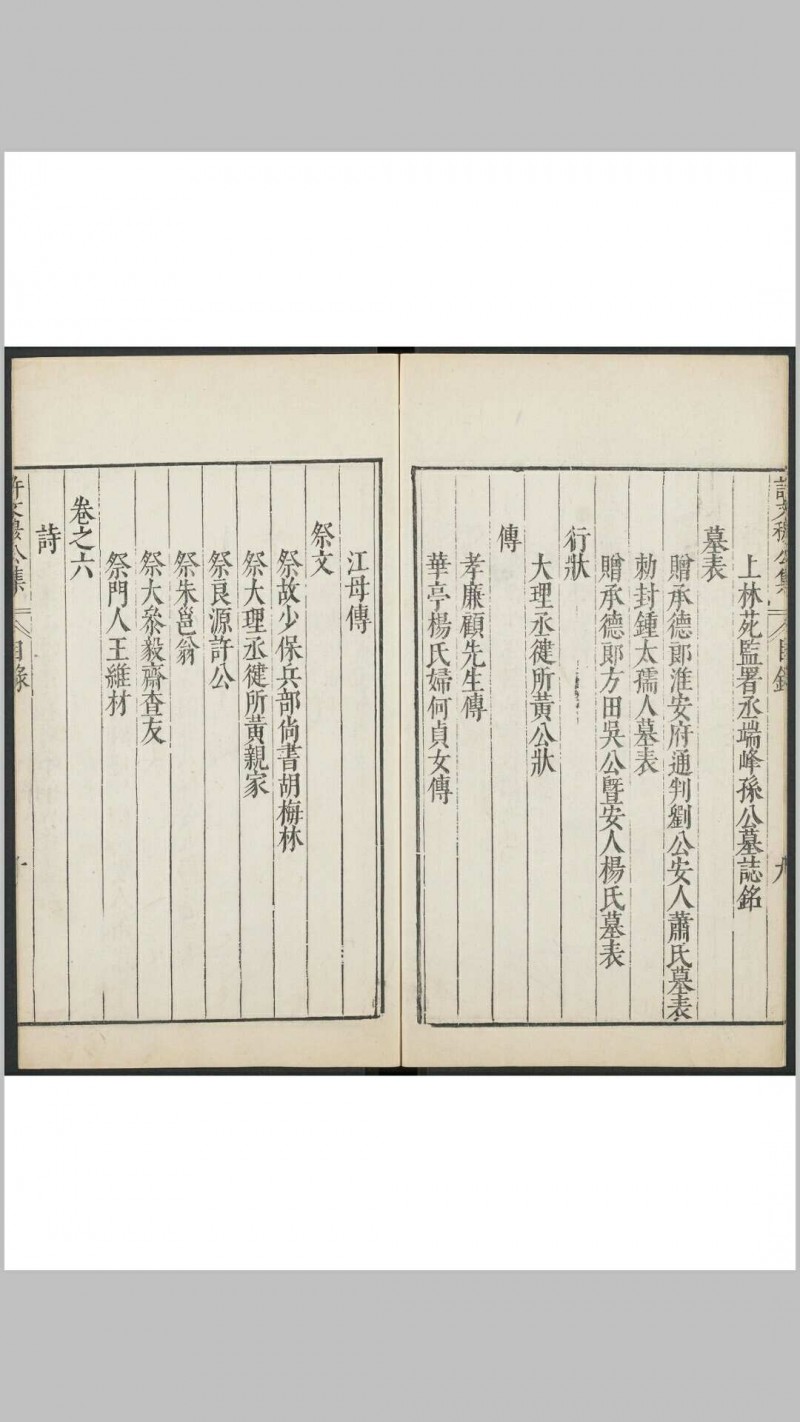 上林苑監署丞端峰孫公墓誌銘
墓表
贈承德郎淮安府通判劉公安人蕭氏墓表
勑封鍾太孺人墓表
贈承德郎方田吳公暨安人楊氏墓表
行狀
大理丞健所黃公狀
傳
孝廉顧先生傳
華亭楊氏婦何貞女傳
江母傳
祭文
祭故少保兵部尚書胡梅林
祭大理丞健所黃親家
祭良源許公
祭朱邕翁
祭大叅毅齋查友
祭門人王維材
卷之六
詩